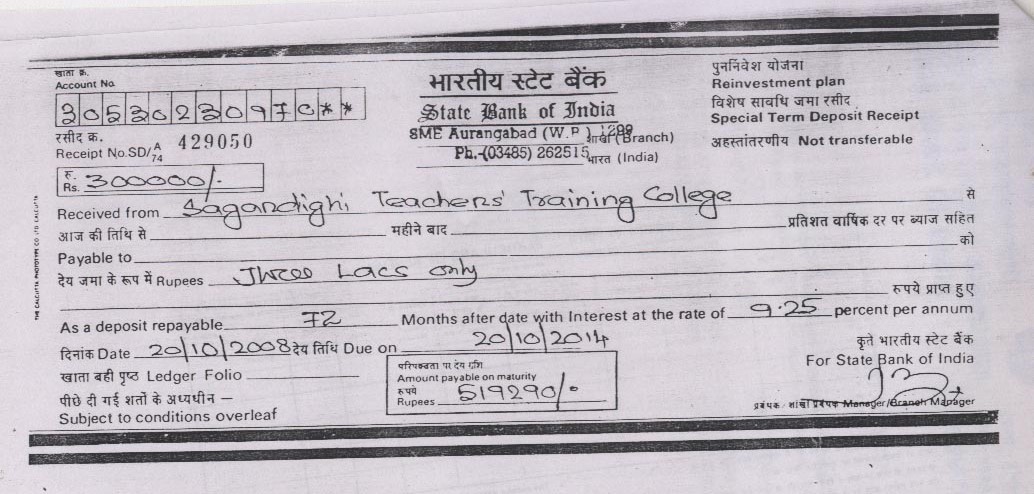 खाता क्र.
Account No.
30530230970**
रसीद क्र.
Receipt No.SD/A/74 429050
रु.
Rs. 300000/-
भारतीय स्टेट बैंक
State Bank of India
SME Aurangabad (W.P.) 1299
शाखा (Branch)
Ph.-(03485) 262515
भारत (India)
पुनर्निवेश योजना
Reinvestment plan
विशेष सावधि जमा रसीद
Special Term Deposit Receipt
अहस्तांतरणीय Not transferable
Received from Sagardighi Teachers' Training College से
आज की तिथि से महीने बाद प्रतिशत वार्षिक दर पर ब्याज सहित
Payable to को
देय जमा के रूप में Rupees Three Lacs only
रुपये प्राप्त हुए
As a deposit repayable 72 Months after date with Interest at the rate of 9.25 percent per annum
दिनांक Date 20/10/2008 देय तिथि Due on 20/10/2014
कृते भारतीय स्टेट बैंक
For State Bank of India
खाता बही पृष्ठ Ledger Folio
परिपक्वता पर देय राशि
Amount payable on maturity
रुपये
Rupees 519290/-
पीछे दी गई शर्तो के अध्यधीन —
Subject to conditions overleaf
प्रबंधक / शाखा प्रबंधक Manager/Branch Manager
THE CALCUTTA PHOTOTYPE CO LTD CALCUTTA